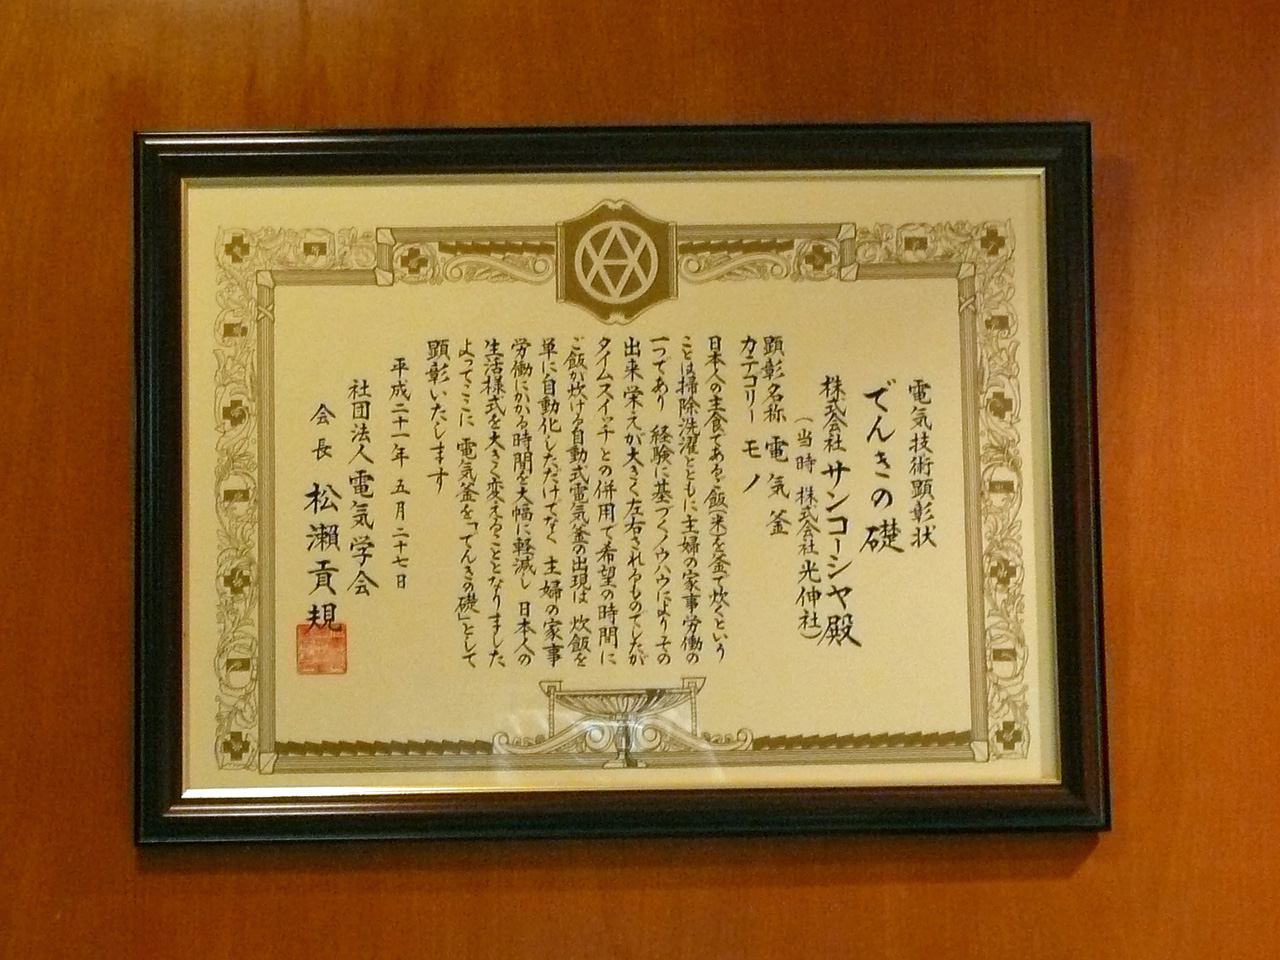 電気技術顕彰状
でんきの礎
株式会社 サンコーシヤ殿
(当時 株式会社光伸社)
顕彰名称 電気釜
カテゴリー モノ
日本人の主食であるご飯(米)を釜で炊くという
ことは掃除洗濯とともに主婦の家事労働の
一つであり 経験に基づくノウハウによりその
出来栄えが大きく左右されるものでしたが
タイムスイッチとの併用で希望の時間に
ご飯が炊ける自動式電気釜の出現は 炊飯を
単に自動化しただけでなく 主婦の家事
労働にかかる時間を大幅に軽減し 日本人の
生活様式を大きく変えることとなりました
よってここに 電気釜を「でんきの礎」として
顕彰いたします
平成二十一年 五月二十七日
社団法人 電気学会
会長 松瀬貢規